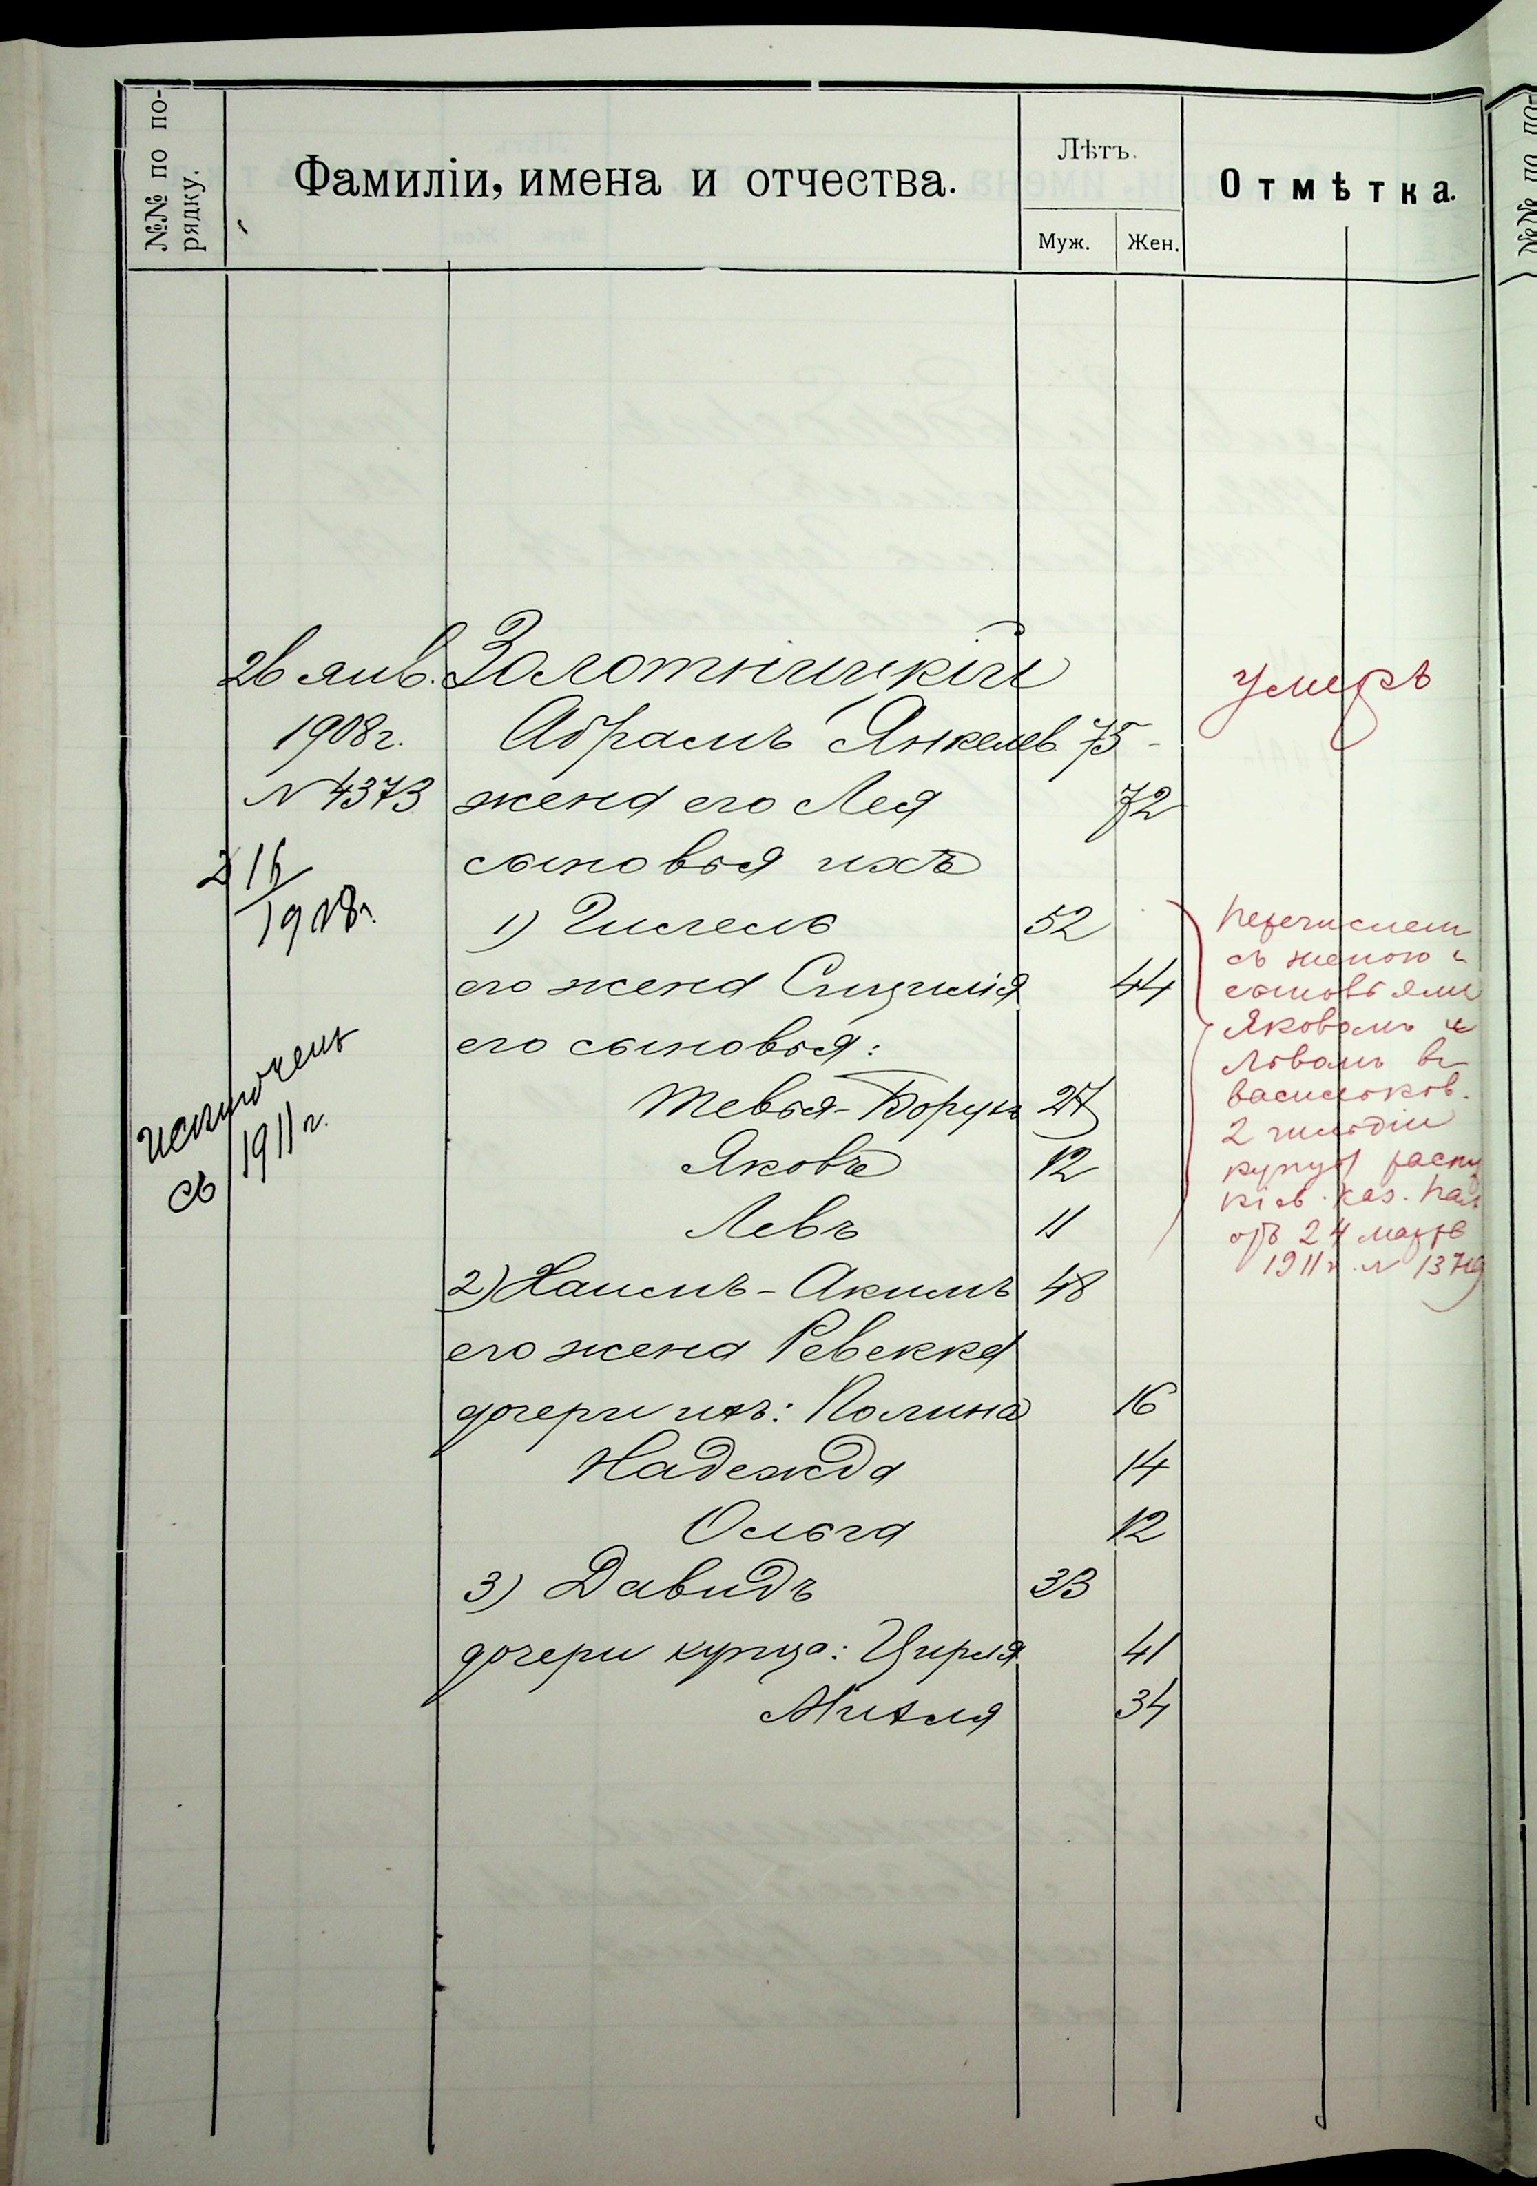 №№ по по-
рядку.
Фамиліи, имена и отчества.
Лѣтъ.
Муж.
Жен.
Отмѣтка.
26 янв. Золотницкій
1908 г. Абрамъ Янкелев. 75 -
N 4373 жена его Лея 72
сыновья ихъ
16
1908 г.
1) Гислель 52
его жена Сицилія 44
его сыновья:
Тевья-Борухъ 27
Яковъ 12
Левъ 11
2) Хаимъ-Акимъ 48
его жена Ревекка
дочери ихъ: Полина 16
Надежда 14
Ольга 12
3) Давидъ 33
дочери купца: Цирля 41
Митля 34
исключенъ
съ 1911 г.
умеръ
перечислен
съ женою и
сыновьями
Яковомъ и
Львомъ въ
васильков.
2 гильдіи
купцы распу
кіев. каз. пал
отъ 24 марта
1911 г. N 13719